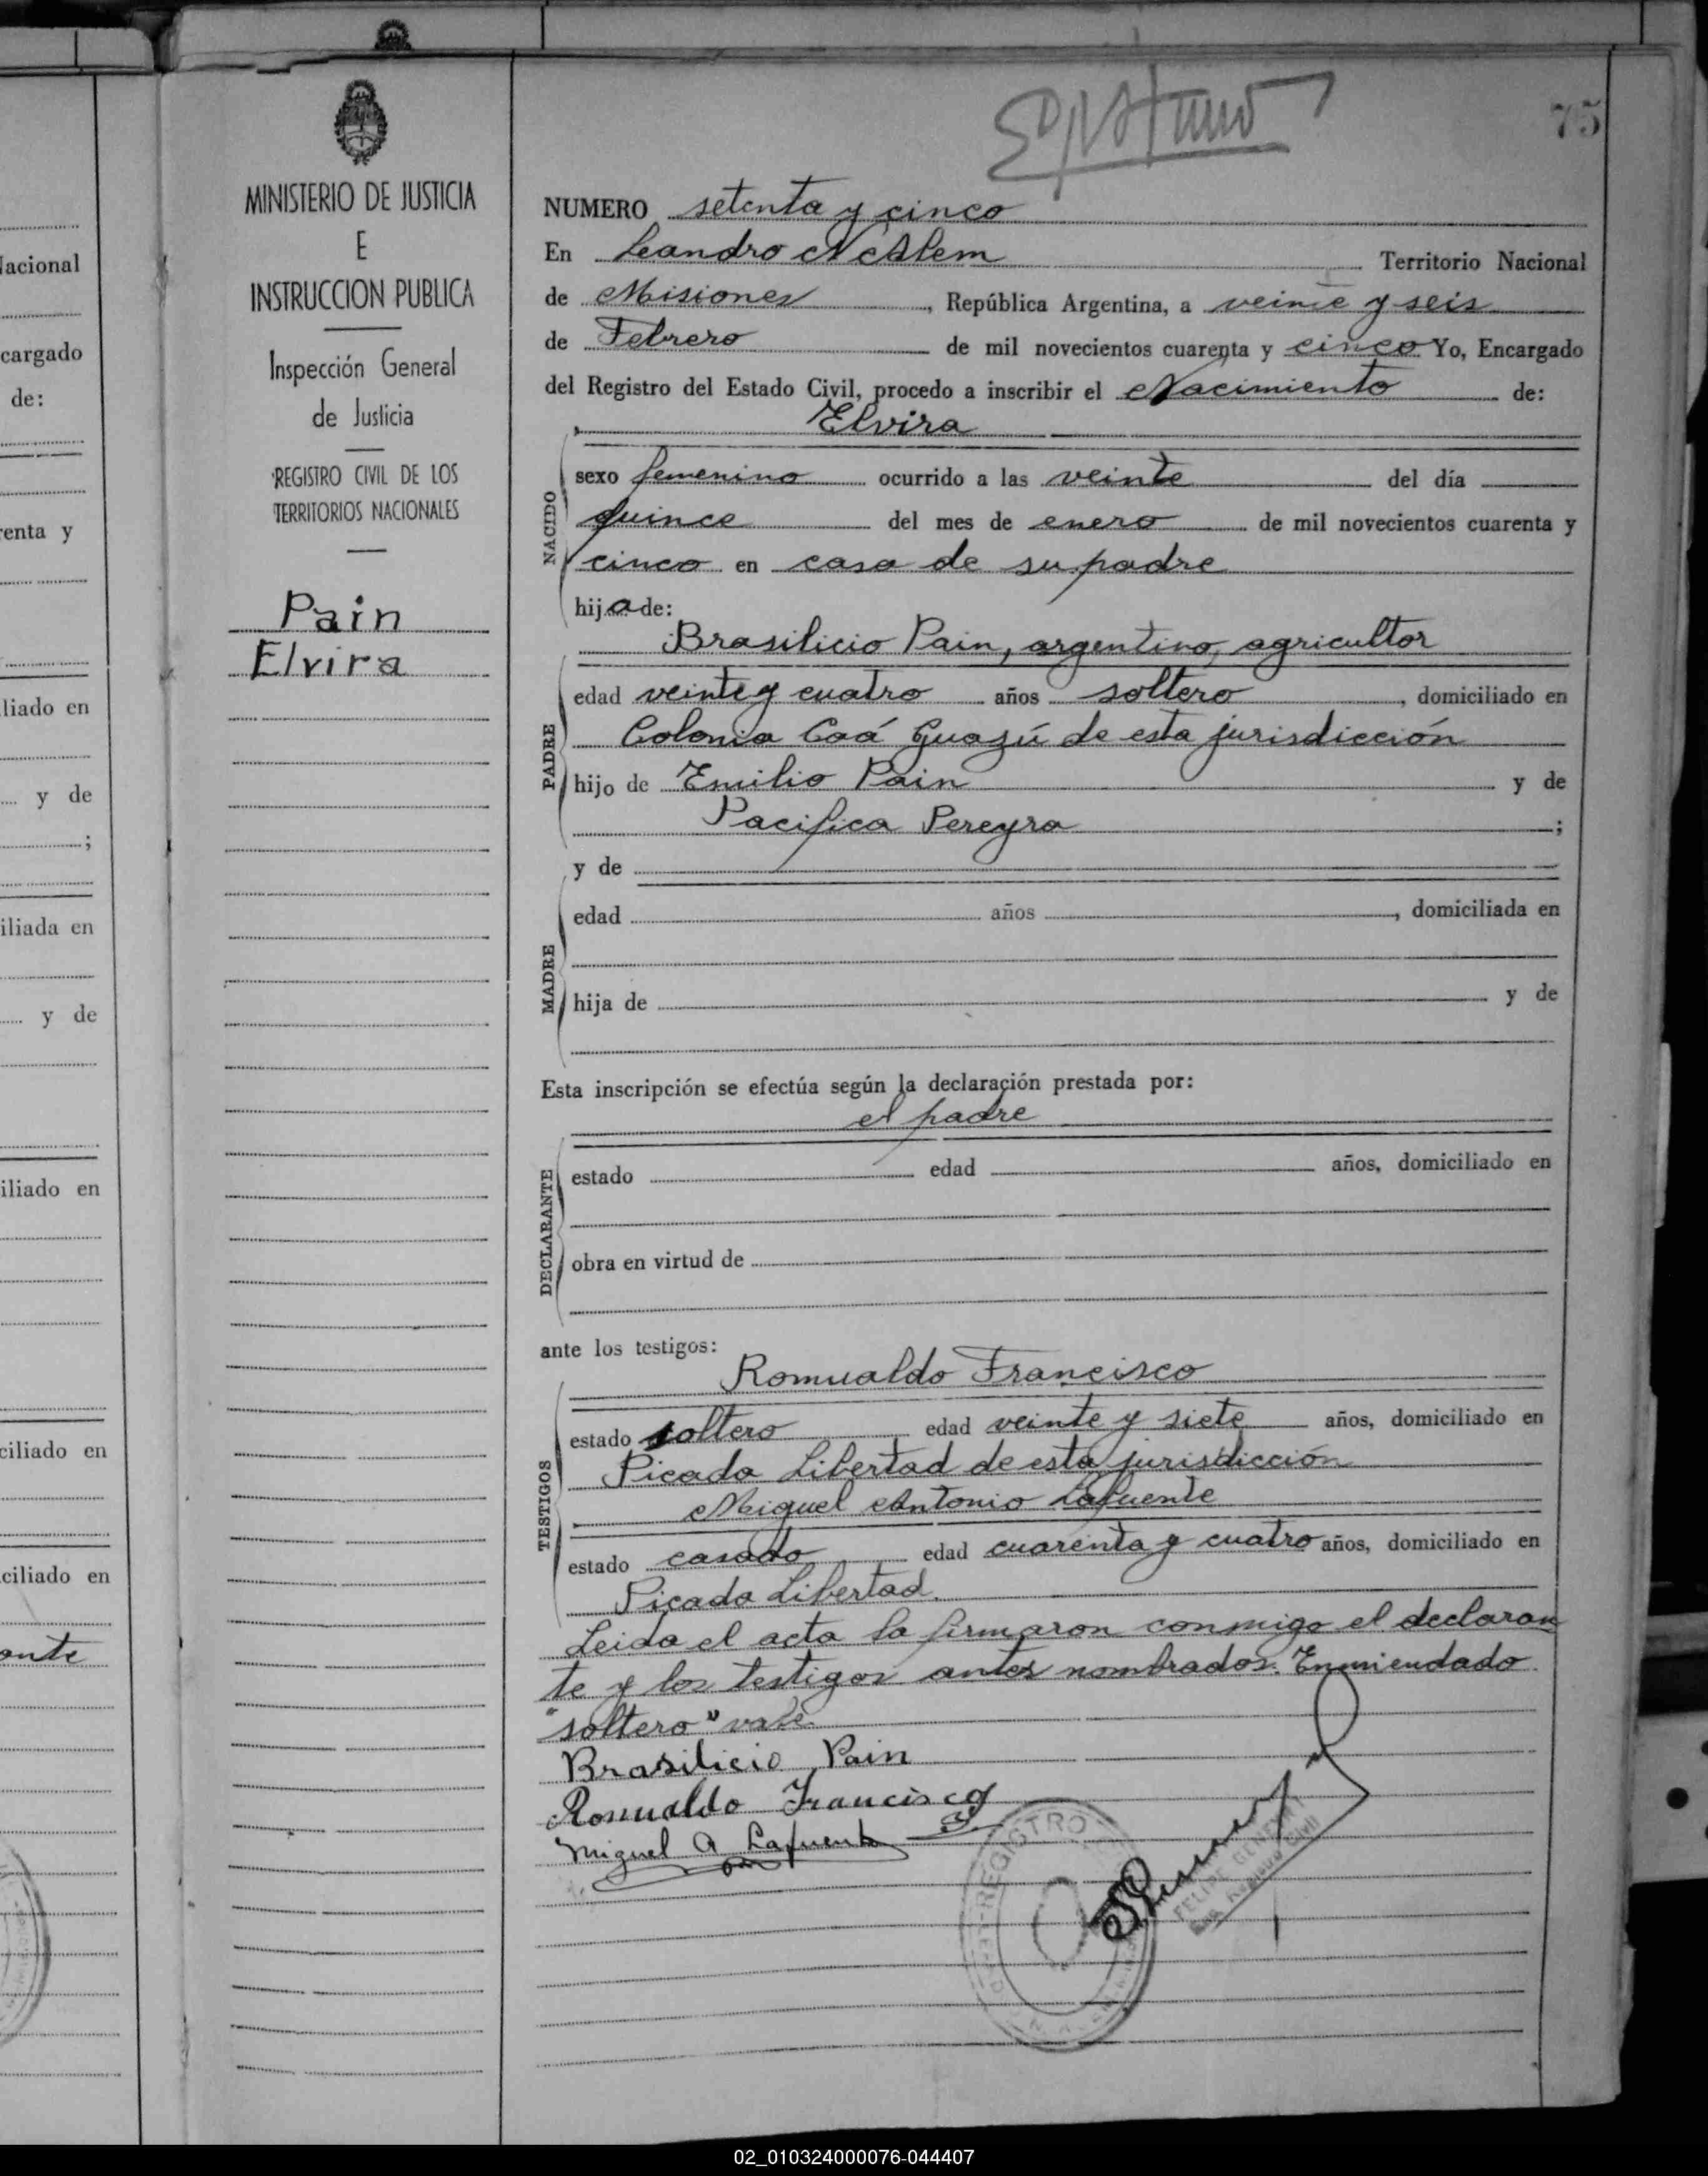 75
MINISTERIO DE JUSTICIA
E
INSTRUCCION PUBLICA
Inspección General
de Justicia
REGISTRO CIVIL DE LOS
TERRITORIOS NACIONALES
Pain
Elvira
NUMERO setenta y cinco
En Leandro N Alem Territorio Nacional
de Misiones, República Argentina, a veinte y seis
de Febrero de mil novecientos cuarenta y cinco Yo, Encargado
del Registro del Estado Civil, procedo a inscribir el Nacimiento de:
Elvira
NACIDO
sexo femenino ocurrido a las veinte del día
quince del mes de enero de mil novecientos cuarenta y
cinco en casa de su padre
hija de:
Brasilicio Pain, argentino, agricultor
PADRE
edad veinte y cuatro años soltero, domiciliado en
Colonia Caá Guazú de esta jurisdicción
hijo de Emilio Pain y de
Pacifica Pereyra;
y de
MADRE
edad años, domiciliada en
hija de y de
Esta inscripción se efectúa según la declaración prestada por:
el padre
DECLARANTE
estado edad años, domiciliado en
obra en virtud de
ante los testigos:
Romualdo Francisco
TESTIGOS
estado soltero edad veinte y siete años, domiciliado en
Picada Libertad de esta jurisdicción
Miguel Antonio Lafuente
estado casado edad cuarenta y cuatro años, domiciliado en
Picada Libertad.
Leida el acta la firmaron conmigo el declaran
te y los testigos antes nombrados. Enmiendado
"soltero" vale.
Brasilicio Pain
Romualdo Francisco
Miguel A Lafuente
REGISTRO
lacional
cargado
de:
enta y
liado en
y de
;
iliada en
y de
iliado en
ciliado en
ciliado en
ante
02_010324000076-044407